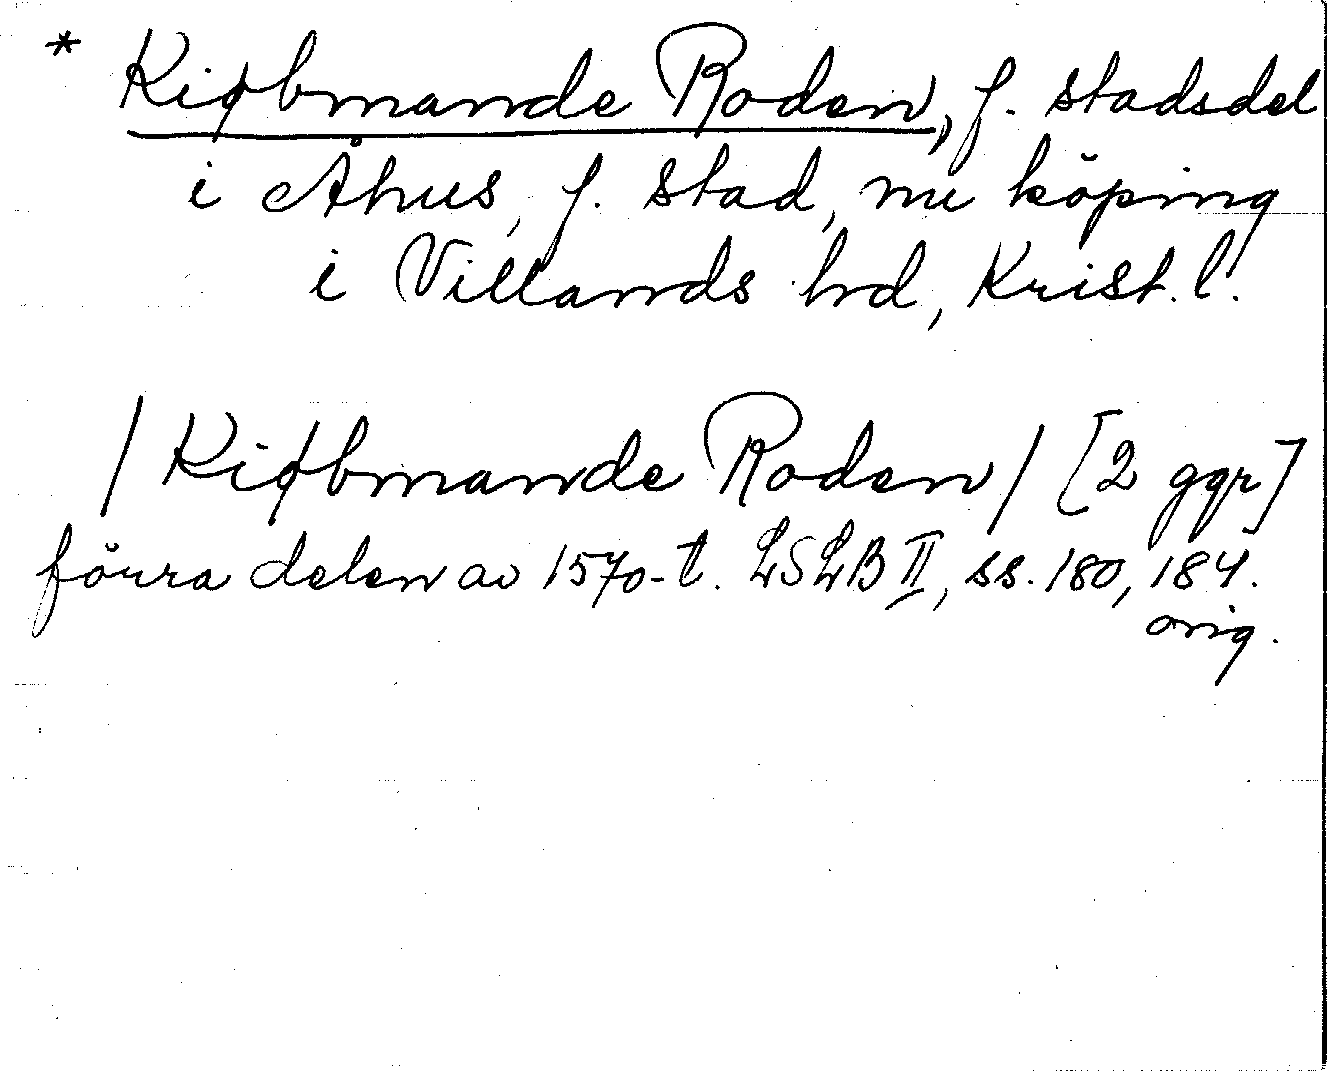 * Kiøbmande Roden, f. stadsdel
i Åhus, f. stad, nu köping
i Villands hd, Krist. l.
/ Kiøbmande Roden / [2 ggr]
förra delen av 1570-t. LSLB II, ss. 180, 184.
orig.